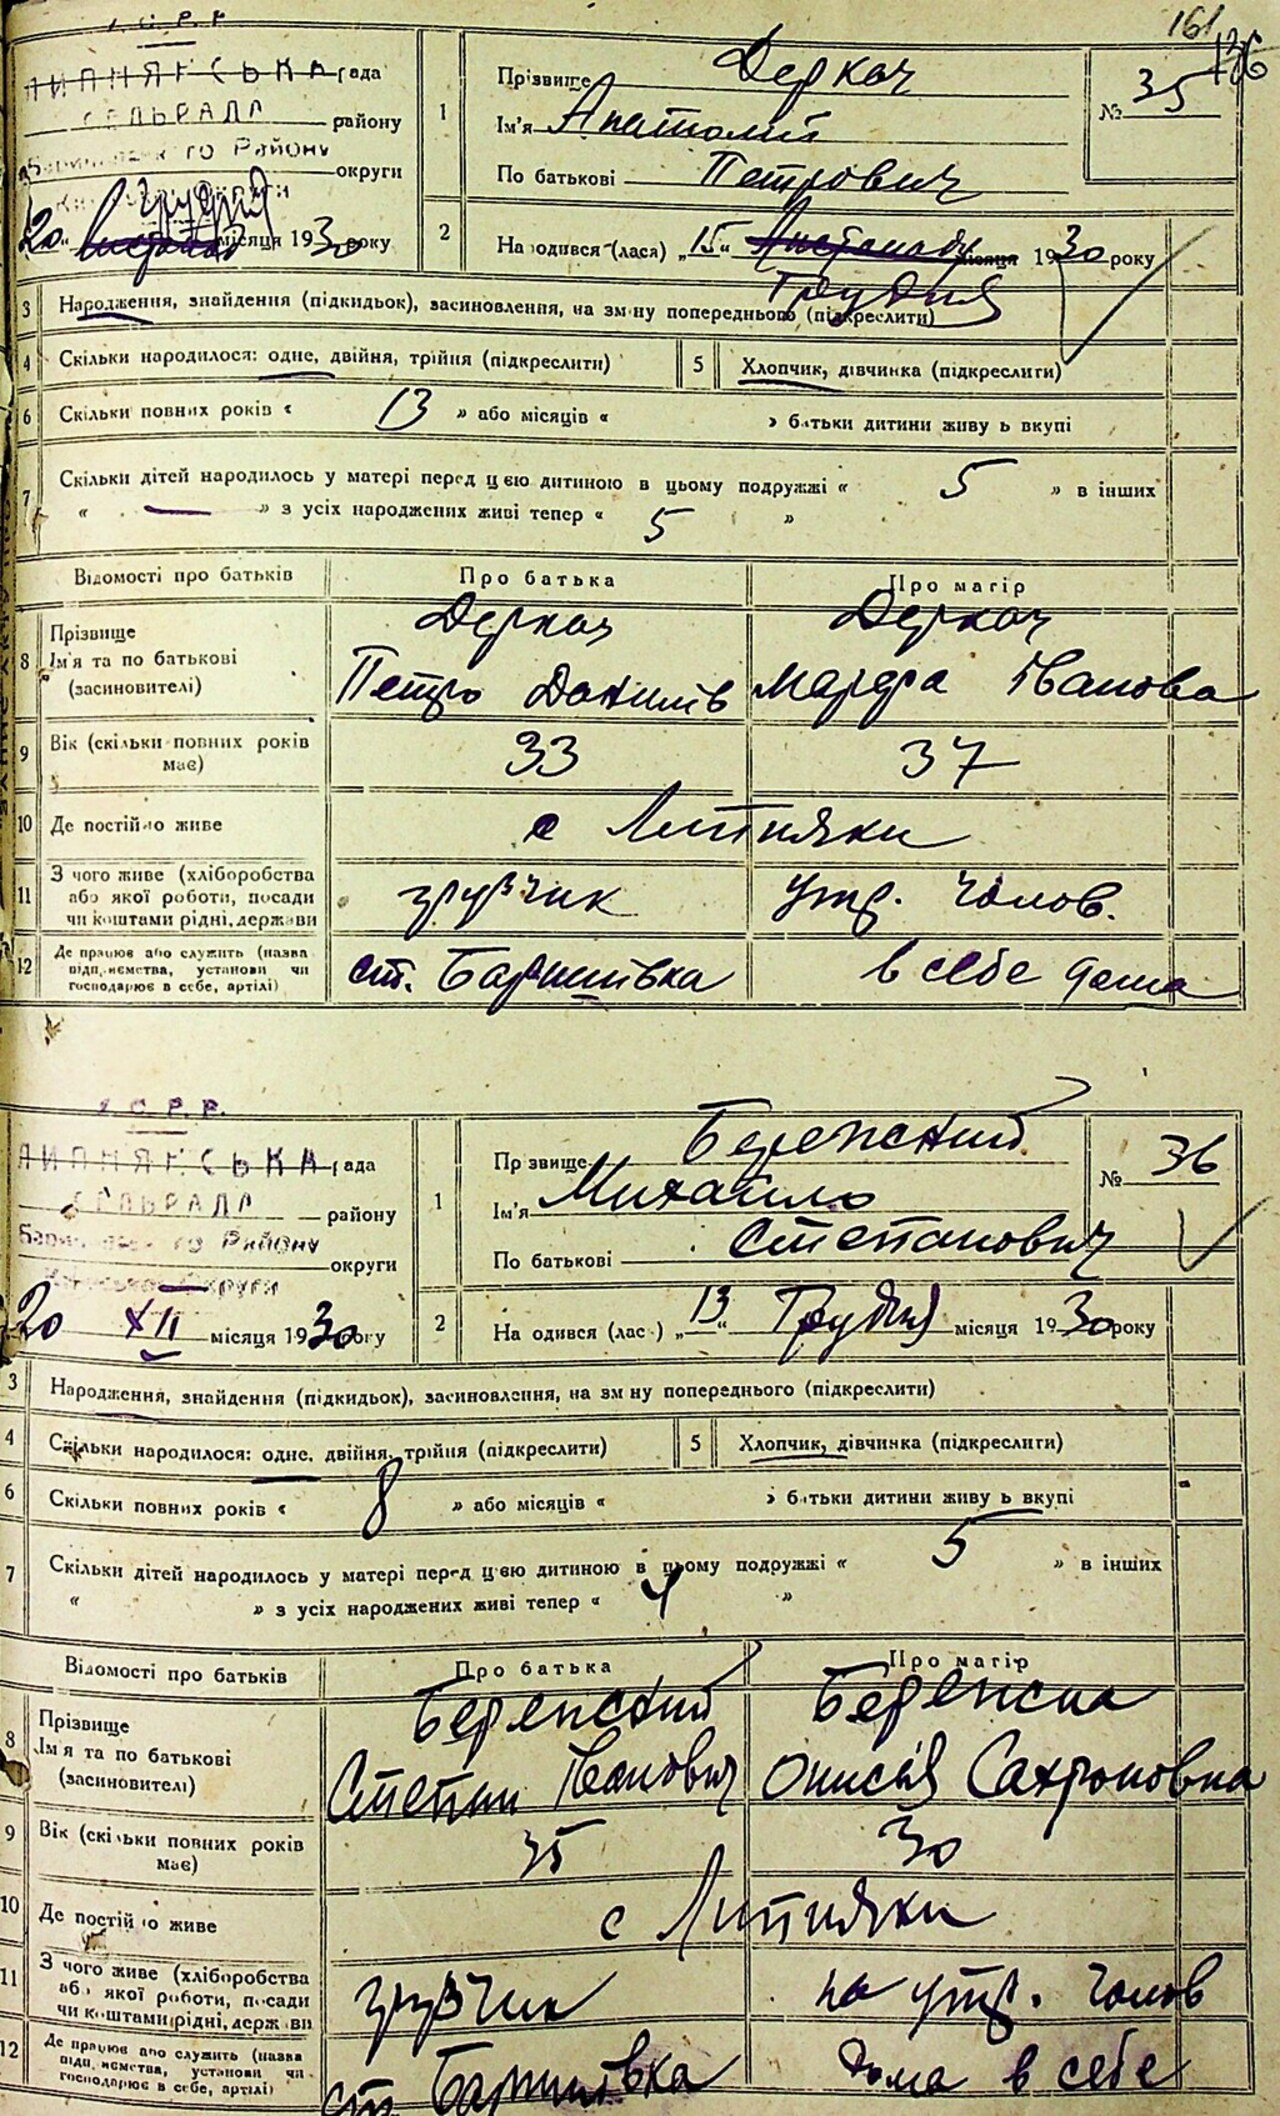 161
136
У.С.Р.Р.
ЛИПНЯГСЬКА рада
СЕЛЬРАДА району
Району округи
20 Грудня місяця 1930 року
1
Прізвище Деркач
Ім'я Анатолій
По батькові Петрович
№ 35
2
Народився (лася) „15“ Листопада місяця 1930 року
Грудня
3 Народження, знайдення (підкидьок), засиновлення, на зміну попереднього (підкреслити)
4 Скільки народилося: одне, двійня, трійня (підкреслити)
5 Хлопчик, дівчинка (підкреслити)
6 Скільки повних років « 13 » або місяців « » батьки дитини живуть вкупі
7 Скільки дітей народилось у матері перед цією дитиною в цьому подружжі « 5 » в інших
« — » з усіх народжених живі тепер « 5 »
Відомості про батьків Про батька Про матір
8 Прізвище Деркач Деркач
Ім'я та по батькові Петро Данилів Марфа Іванова
(засиновителі)
9 Вік (скільки повних років має) 33 37
10 Де постійно живе с Липняки
11 З чого живе (хліборобства
або якої роботи, посади грузчик утр. чолов.
чи коштами рідні, держави
12 Де працює або служить (назва
підприємства, установи чи ст. Баришівка в себе дома
господарює в себе, артілі)
У.С.Р.Р.
ЛИПНЯГСЬКА рада
СЕЛЬРАДА району
Району
Округи округи
20 XII місяця 1930 року
1
Прізвище Беренский
Ім'я Михайло
По батькові Степанович
№ 36
2
Народився (лась) „13“ Грудня місяця 1930 року
3 Народження, знайдення (підкидьок), засиновлення, на зміну попереднього (підкреслити)
4 Скільки народилося: одне, двійня, трійня (підкреслити)
5 Хлопчик, дівчинка (підкреслити)
6 Скільки повних років « 8 » або місяців « » батьки дитини живуть вкупі
7 Скільки дітей народилось у матері перед цією дитиною в цьому подружжі « 5 » в інших
« » з усіх народжених живі тепер « 4 »
Відомості про батьків Про батька Про матір
8 Прізвище Беренский Беренска
Ім'я та по батькові Степан Іванович Онисія Сахроновна
(засиновителі)
9 Вік (скільки повних років має) 35 30
10 Де постійно живе с Липняки
11 З чого живе (хліборобства
або якої роботи, посади грузчик на утр. чолов
чи коштами рідні, держави
12 Де працює або служить (назва
підприємства, установи чи ст. Баришівка дома в себе
господарює в себе, артілі)